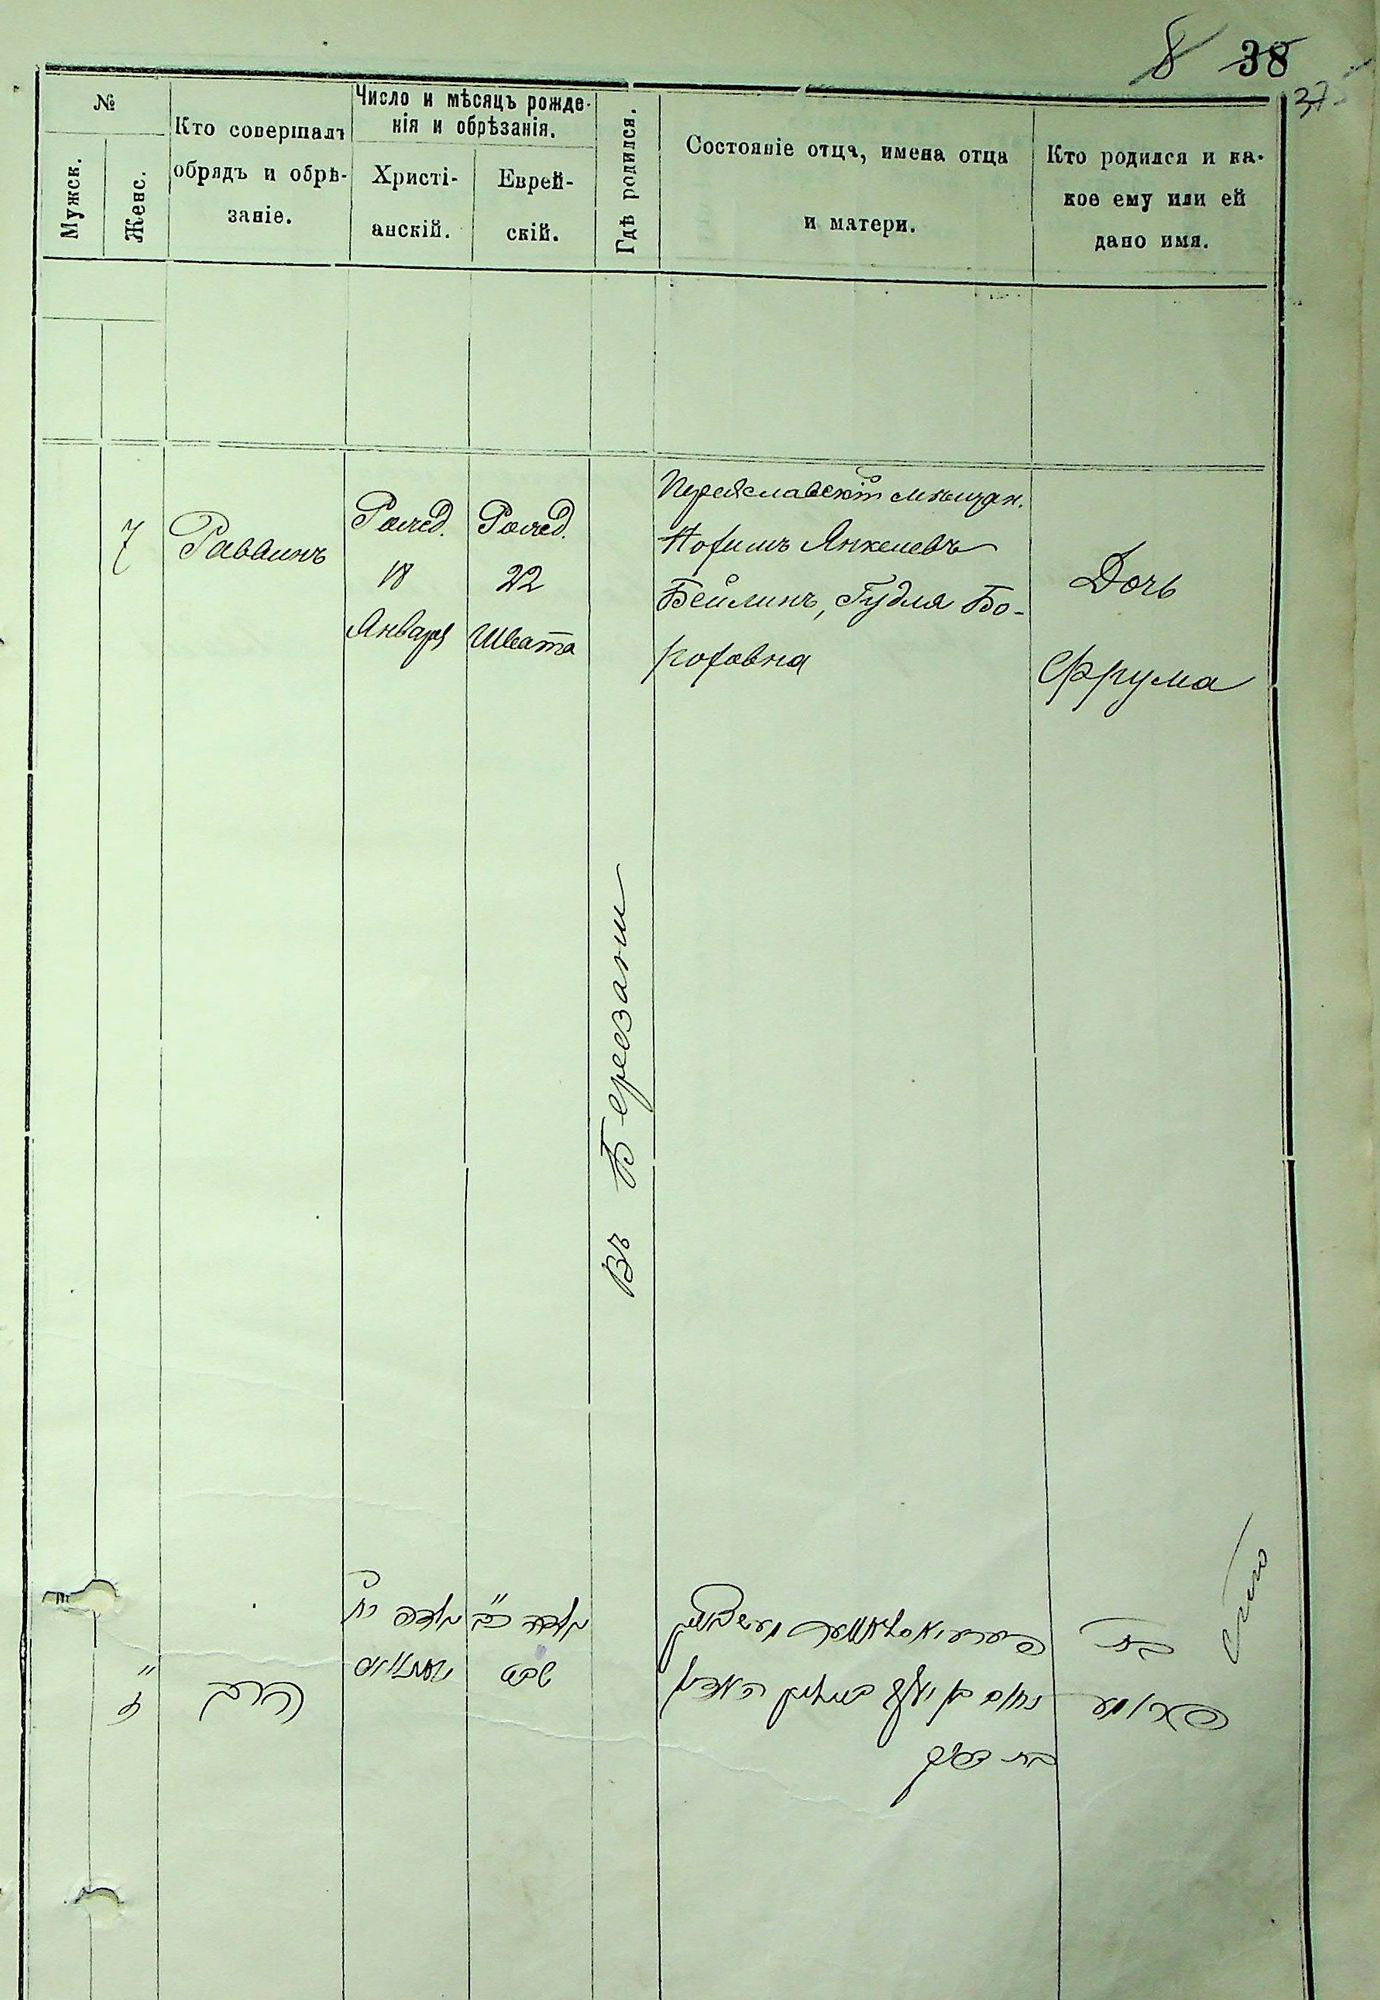 8 38
37
№
Мужск.
Женс.
Кто совершалъ
обрядъ и обрѣ-
заніе.
Число и мѣсяцъ рожде-
нія и обрѣзанія.
Христі-
анскій.
Еврей-
скій.
Гдѣ родился.
Состояніе отца, имена отца
и матери.
Кто родился и ка-
кое ему или ей
дано имя.
7
Раввинъ
Рожд.
18
Января
Рожд.
22
Швата
Въ Березани
Переяславскій мѣщан.
Нохимъ Янкелевъ
Бейлинъ, Гудля Бо-
роховна
Дочь
Фрума
הרב
נולדה
נולדה כ״ב
שבט
בת